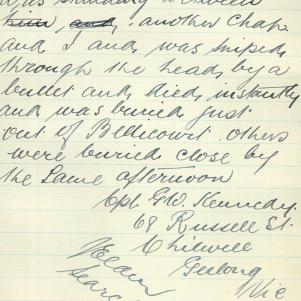 was standing between
him, and, another Chap
and I and was sniped
through the head by a
bullet and died instantly
and was buried just
out of Bellicourt. Others
were buried close by
the same afternoon
Cpl. Kennedy.
68 Russell St.
Chilwell
Geelong
Vic